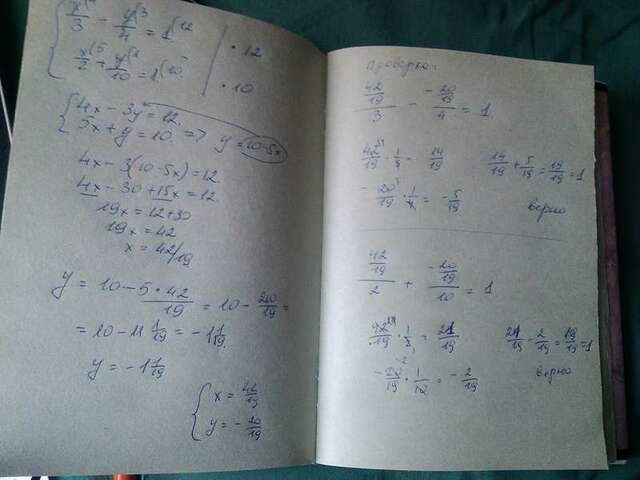 x/3 - y/4 = 1 | · 12
x/2 + y/10 = 1 | · 10
{ 4x - 3y = 12
5x + y = 10 => y = 10-5x
4x - 3(10-5x) = 12
4x - 30 + 15x = 12
19x = 12+30
19x = 42
x = 42/19
y = 10 - 5·42/19 = 10 - 210/19 =
= 10 - 11 1/19 = -1 1/19
y = -1 1/19
{ x = 42/19
y = -20/19
Проверка:
42/19 / 3 - -20/19 / 4 = 1
42/19 · 1/3 = 14/19
14/19 + 5/19 = 19/19 = 1
-20/19 · 1/4 = -5/19
верно
42/19 / 2 + -20/19 / 10 = 1
42/19 · 1/2 = 21/19
21/19 - 2/19 = 19/19 = 1
-20/19 · 1/10 = -2/19
верно